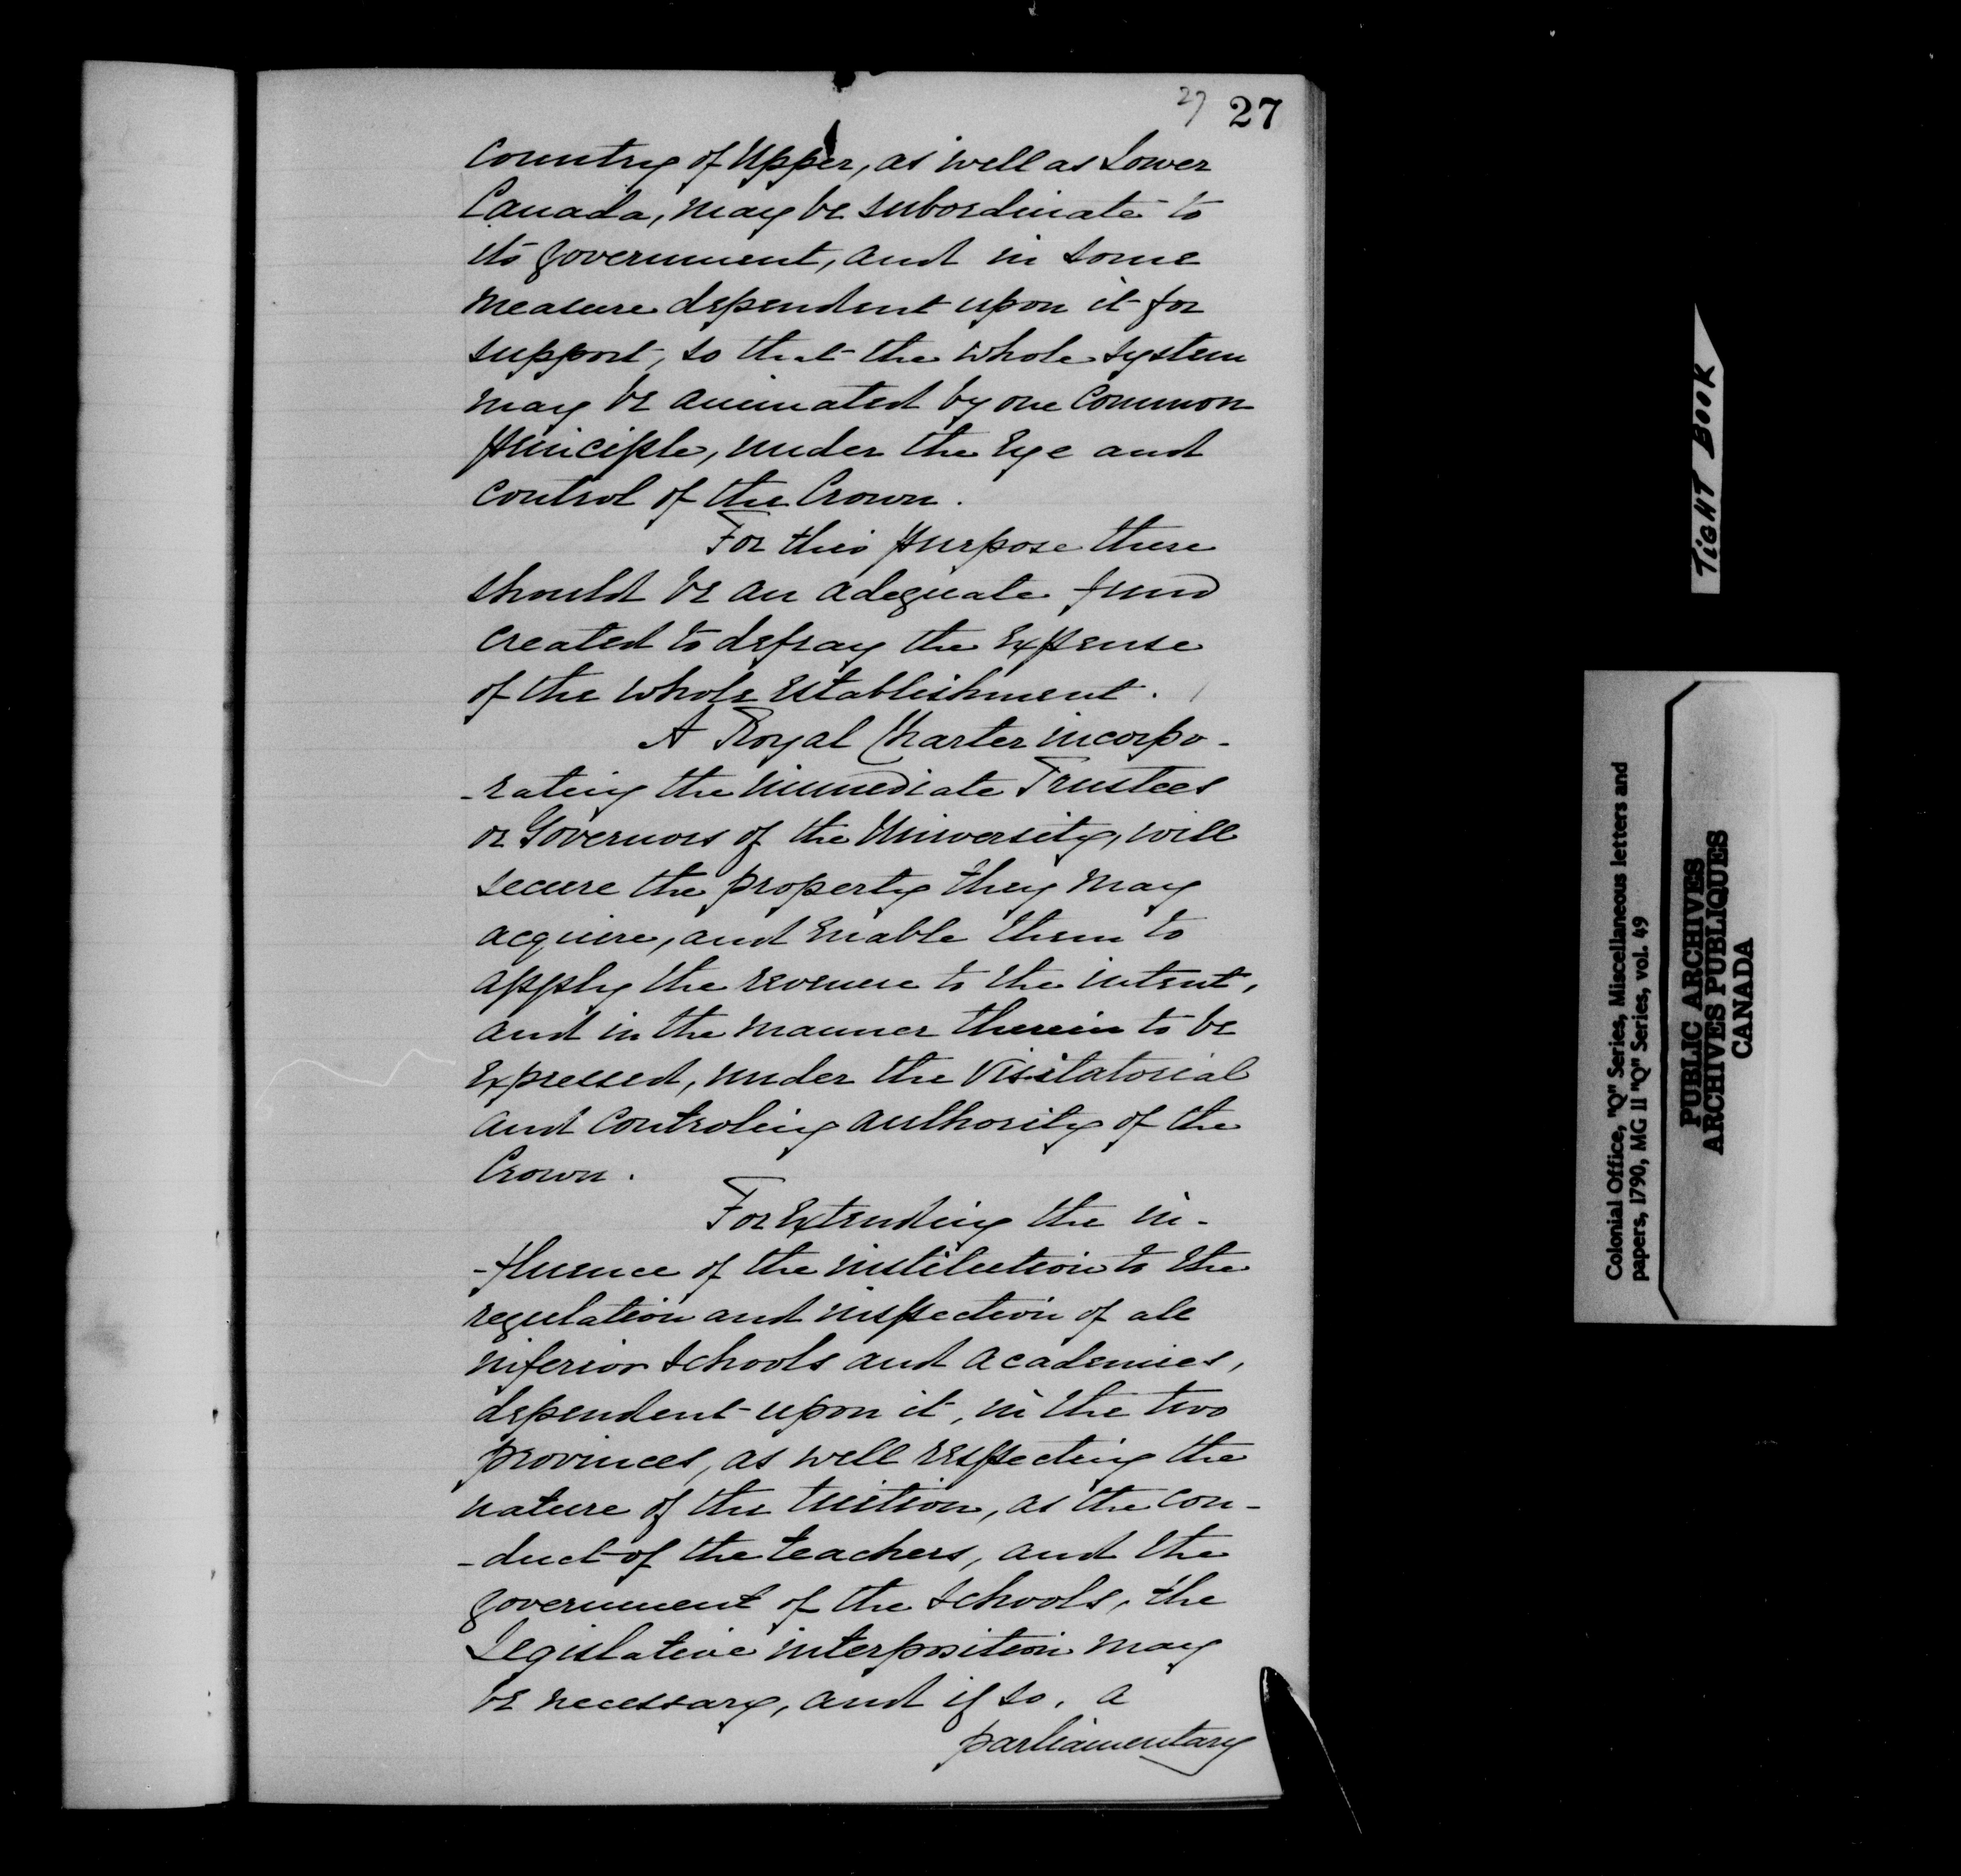 27 27
country of Upper, as well as Lower
Canada, may be subordinate to
its government, and in some
measure dependent upon it for
support, so that the whole system
may be animated by one common
principle, under the Eye and
control of the Crown.
For this purpose there
should be an adequate fund
created to defray the Expense
of the whole Establishment.
A Royal Charter incorpo-
-rating the immediate Trustees
or Governors of the University, will
secure the property they may
acquire, and Enable them to
apply the revenue to the intent,
and in the manner therein to be
Expressed, under the Visitatorial
and controling authority of the
Crown.
For Extending the in-
-fluence of the institution to the
regulation and inspection of all
inferior schools and academies,
dependent upon it, in the two
provinces, as well respecting the
nature of the tuition, as the con-
-duct of the teachers, and the
government of the schools, the
Legislative interposition may
be necessary, and if so, a
parliamentary
TIGHT BOOK
Colonial Office, "Q" Series, Miscellaneous letters and
papers, 1790, MG 11 "Q" Series, vol. 49
PUBLIC ARCHIVES
ARCHIVES PUBLIQUES
CANADA